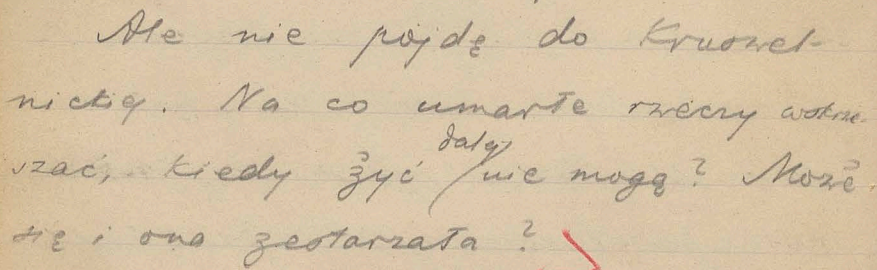 Ale nie pójdę do Kruszel-
nickiej. Na co umarłe rzeczy wskrze-
szać, kiedy żyć dalej nie mogą? Może
się i ona zestarzała?